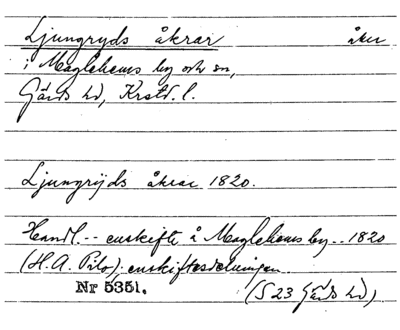 Ljungryds åkrar åker
i Maglehems by och sn,
Gärds hd, Krstd. l.
Ljungrÿds åkrar 1820.
Handl. -- enskifte å Maglehems by -- 1820
(H. A. Pilo); enskiftesdelningen
Nr 5351. (S 23 Gärds hd)